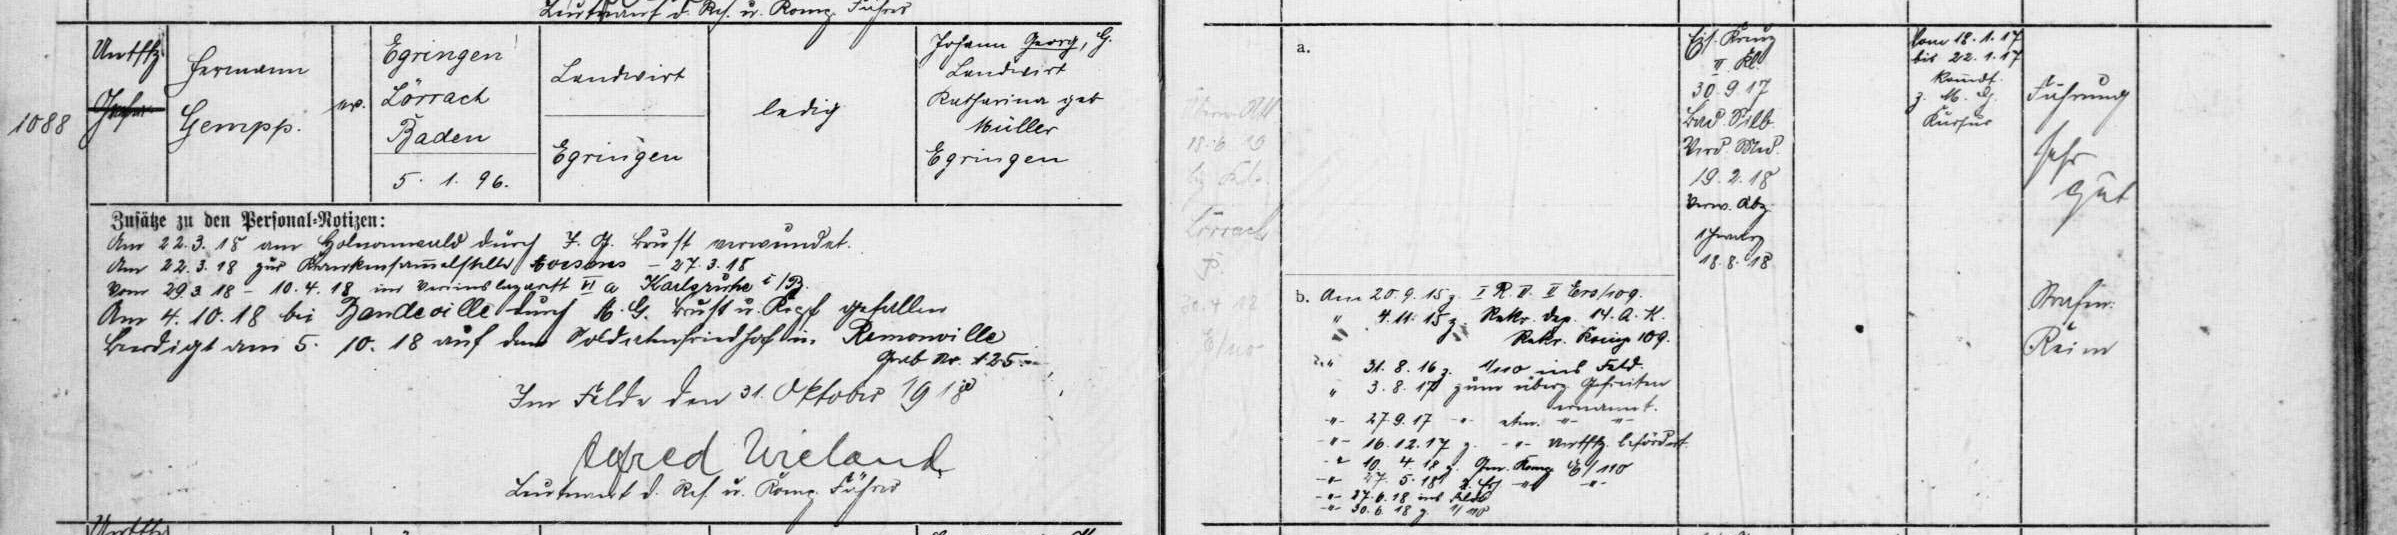 Leutnant d. Res. u. Komp. Führer
1088
Untffz.
Hermann
Gempp.
ev.
Egringen
Lörrach
Baden
5. 1. 96.
Landwirt
Egringen
ledig
Johann Georg, G.
Landwirt
Katharina geb
Müller
Egringen
Zusätze zu den Personal-Notizen:
Am 22.3.18 am durch J. G. Brust verwundet.
Am 22.3.18 zur Krankensammelstelle - 27.3.18
Vom 29.3.18 - 10.4.18 im Vereinslazarett VI a Karlsruhe i/B.
Am 4.10.18 bei Bandeville durch M. G. Brust u. Kopf gefallen
Beerdigt am 5. 10. 18 auf dem Soldatenfriedhof in Remonville
Grab Nr. 125
Im Felde den 31. Oktober 1918
Alfred Wieland
Leutnant d. Res. u. Komp. Führer
Lörrach
a.
Eis. Kreuz
II. Kl.
30.9.17
Bad. Silb.
Verd. Med.
19.2.18
Verw. Abz.
schwarz
18.8.18
b. Am 20.9.15 z. I R. D. II Ers/109.
" 4.11.15 z. Rekr. Dep. 14. A. K.
Rekr. Komp 109.
" 31.8.16 z. 1/110 ins Feld.
" 3.8.17 zum überz. Gefreiten
ernannt.
-"- 27.9.17 -"- etm. -"- -"-
-"- 16.12.17 z. -"- Untffz. befördert.
-"- 10.4.18 z. Gen. Komp E/110
-"- 27.5.18 -"- -"-
-"- 27.6.18 ins Feld
-"- 30.6.18 z. 1/110
Vom 18.1.17
bis 22.1.17
komdt.
z. M. G.
Kursus
Führung
sehr
gut
Strafen:
Keine